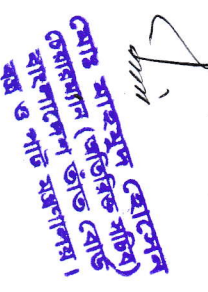 মোঃ মাহমুদ হোসেন
চেয়ারম্যান (অতিরিক্ত সচিব)
বাংলাদেশ তাঁত বোর্ড
বস্ত্র ও পাট মন্ত্রণালয়।